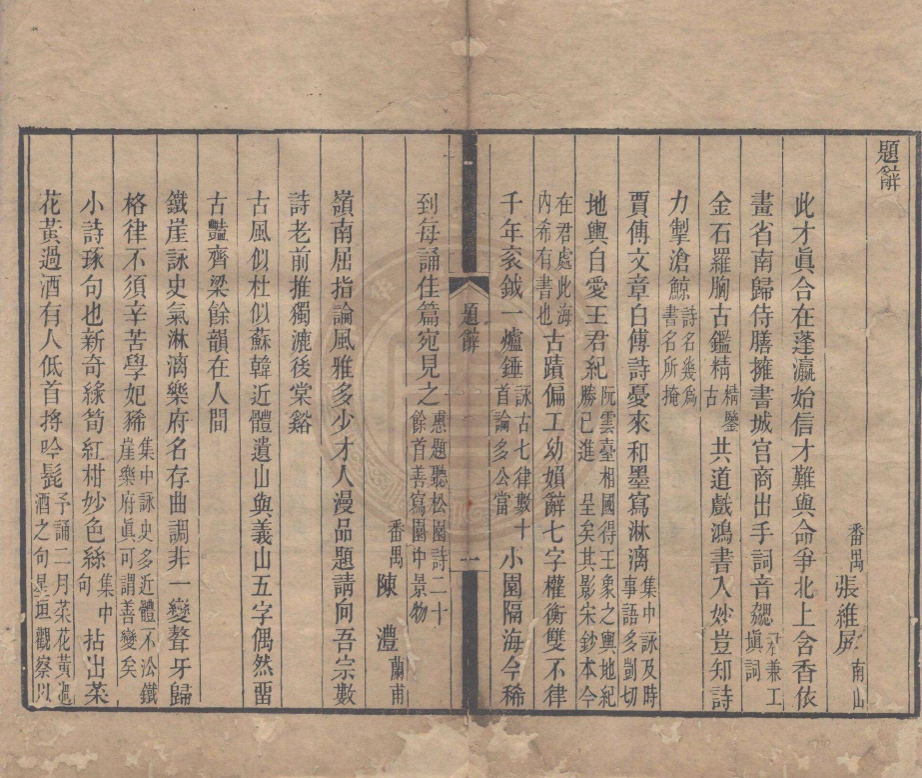 題辭
番禺張維屏南山
此才眞合在蓬瀛始信才難與命爭北上含香依
畫省南歸侍膳擁書城宮商出手詞音兼工塡詞
金石羅胸古鑑精精鑒古共道戲鴻書入妙豈知詩
力掣滄鯨詩名幾爲書名所掩
賈傅文章白傅詩憂來和墨寫淋漓集中詠及時事語多剴切
地輿自愛王君紀阮雲臺相國得王象之輿地紀勝已進呈矣其影宋鈔本今
在君處此海內希有書也古蹟偏工幼嬾辭七字權衡雙不律
千年袞鉞一爐錘詠古七律數十首論多公當小園隔海今稀
到每誦佳篇宛見之惠題聽松園詩二十餘首善寫園中景物
番禺陳澧蘭甫
嶺南屈指論風雅多少才人漫品題請向吾宗數
詩老前推獨漉後棠谿
古風似杜似蘇韓近體遺山與義山五字偶然留
古豔齊梁餘韻在人間
鐵崖詠史氣淋漓樂府名存曲調非一變聲牙歸
格律不須辛苦學妃豨集中詠史多近體不沿鐵崖樂府眞可謂善變矣
小詩琢句也新奇綠筍紅柑妙色絲集中句拈出菜
花黃過酒有人低首撚吟髭予誦二月菜花黃過酒之句星垣觀察以
題辭
一